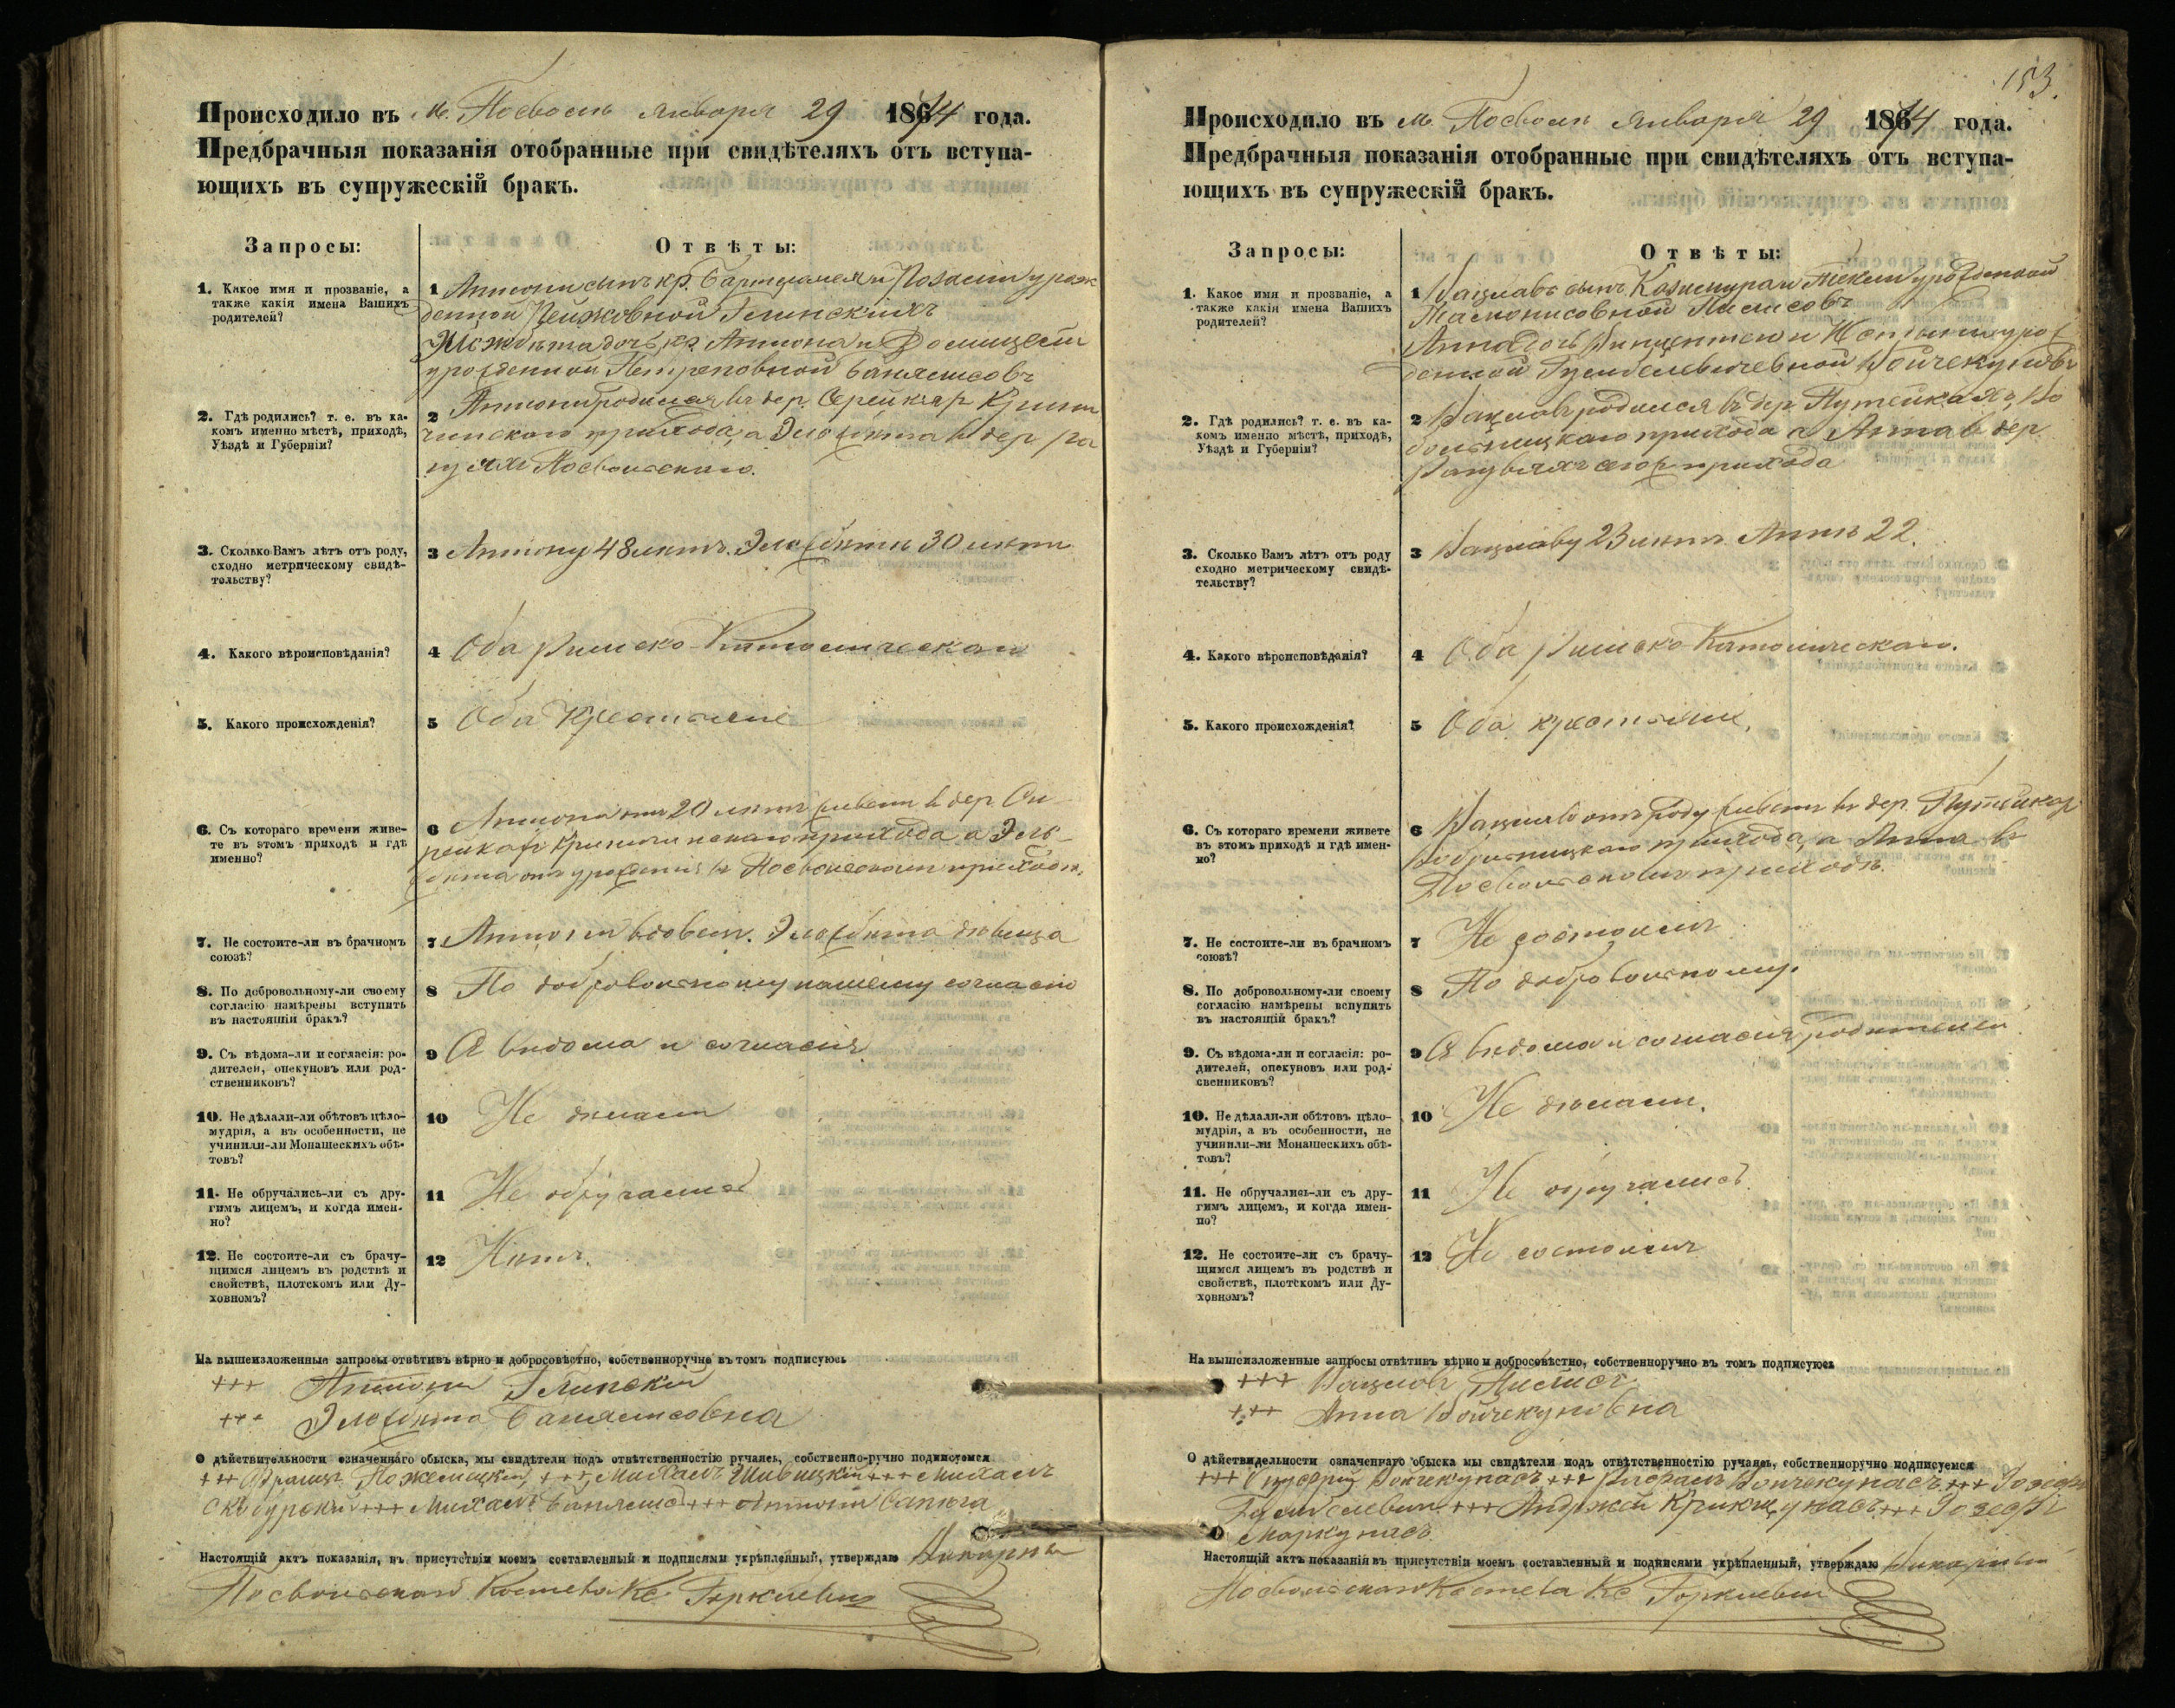 Происходило въ м. Посволь января 29 1874 года.
Предбрачныя показанія отобранные при свидѣтеляхъ отъ вступа-
ющихъ въ супружескій бракъ.
Запросы:
Отвѣты:
1. Какое имя и прозваніе, а
также какія имена Вашихъ
родителей?
1 Антони сынъ кр. Бартломея и урож
денной Глинскихъ
Эльжбѣта дочь кр. Антона и Домицели
урожденной Петреновной Банялисовъ
2. Гдѣ родились? т. е. въ ка-
комъ именно мѣстѣ, приходѣ,
Уѣздѣ и Губерніи?
2 Антони родился въ дер. Крини
чинскаго прихода, а Эльжбѣта въ дер.
Посвольскаго.
3. Сколько Вамъ лѣтъ отъ роду,
сходно метрическому свидѣ-
тельству?
3 Антону 48 лѣтъ. Эльжбѣтѣ 30 лѣтъ
4. Какого вѣроисповѣданія?
4 Оба Римско-Католическаго
5. Какого происхожденія?
5 Оба Крестьяне
6. Съ котораго времени живе-
те въ этомъ приходѣ и гдѣ
именно?
6 20 лѣтъ живетъ въ дер
прихода а Эльж
бѣта отъ урожденія въ Посвольскомъ приходѣ.
7. Не состоите-ли въ брачномъ
союзѣ?
7 Антони вдовецъ. Эльжбѣта дѣвица
8. По добровольному-ли своему
согласію намѣрены вступить
въ настоящій бракъ?
8 По добровольному нашему согласію
9. Съ вѣдома-ли и согласія: ро-
дителей, опекуновъ или род-
ственниковъ?
9 Съ вѣдома и согласія
10. Не дѣлали-ли обѣтовъ цѣло-
мудрія, а въ особенности, не
учинили-ли Монашескихъ обѣ-
товъ?
10 Не дѣлали
11. Не обручались-ли съ дру-
гимъ лицемъ, и когда имен-
но?
11 Не обручались
12. Не состоите-ли съ брачу-
щимся лицемъ въ родствѣ и
свойствѣ, плотскомъ или Ду-
ховномъ?
12 Нѣтъ.
На вышеизложенные запросы отвѣтивъ вѣрно и добросовѣстно, собственноручно въ томъ подписуюсь
+++ Антони Глинскій
+++ Эльжбѣта Банялисовна
О дѣйствительности означеннаго обыска, мы свидѣтели подъ отвѣтственностію ручаясь, собственно-ручно подписуемся
+++ Францъ +++ Михалъ +++ Михалъ
+++ Михалъ Банялисъ +++ Антони Сапѣга
Настоящій актъ показанія, въ присутствіи моемъ составленный и подписями укрѣпленный, утверждаю Викарный
Посвольскаго Костела Кс. Горкевичъ
153.
Происходило въ м. Посволь января 29 1874 года.
Предбрачныя показанія отобранные при свидѣтеляхъ отъ вступа-
ющихъ въ супружескій бракъ.
Запросы:
Отвѣты:
1. Какое имя и прозваніе, а
также какія имена Вашихъ
родителей?
1 Вацлавъ сынъ Казимира и Текли урожденной
Анна дочь Винцентего и урож
денной Гумбелевичевной Войчекуновъ
2. Гдѣ родились? т. е. въ ка-
комъ именно мѣстѣ, приходѣ,
Уѣздѣ и Губерніи?
2 Вацлавъ родился въ дер. Путейкахъ, Во
больницкаго прихода а Анна въ дер.
прихода
3. Сколько Вамъ лѣтъ отъ роду
сходно метрическому свидѣ-
тельству?
3 Вацлаву 23 лѣтъ Аннѣ 22.
4. Какого вѣроисповѣданія?
4 Оба Римско Католическаго.
5. Какого происхожденія?
5 Оба крестьяне.
6. Съ котораго времени живете
въ этомъ приходѣ и гдѣ имен-
но?
6 Вацлавъ отъ роду живетъ въ дер. Путейкахъ
Вобольницкаго прихода, а Анна въ
Посвольскомъ приходѣ.
7. Не состоите-ли въ брачномъ
союзѣ?
7 Не состоимъ
8. По добровольному-ли своему
согласію намѣрены вспупить
въ настоящій бракъ?
8 По добровольному.
9. Съ вѣдома-ли и согласія: ро-
дителей, опекуновъ или род-
свенниковъ?
9 Съ вѣдома и согласія родителей.
10. Не дѣлали-ли обѣтовъ цѣло-
мудрія, а въ особенности, не
учинили-ли Монашескихъ обѣ-
товъ?
10 Не дѣлали.
11. Не обручались-ли съ дру-
гимъ лицемъ, и когда имен-
но?
11 Не обручались.
12. Не состоите-ли съ брачу-
щимся лицемъ въ родствѣ и
свойствѣ, плотскомъ или Ду-
ховномъ?
12 Не состоимъ
На вышеизложенные запросы отвѣтивъ вѣрно и добросовѣстно, собственноручно въ томъ подписуюсь
+++ Вацлавъ
+++ Анна Войчекуновна
О дѣйствидельности означеннаго обыска мы свидѣтели подъ отвѣтственностію ручаясь, собственноручно подписуемся
+++ Войчекунасъ +++ Войчекунасъ +++ Іозефъ
Гумбелевичъ +++ Андржей Крикщунасъ +++ Іозефъ
Маркунасъ
Настоящій актъ показанія въ присутствіи моемъ составленный и подписями укрѣпленный, утверждаю Викарный
Посвольскаго Костела Кс Горкевичъ